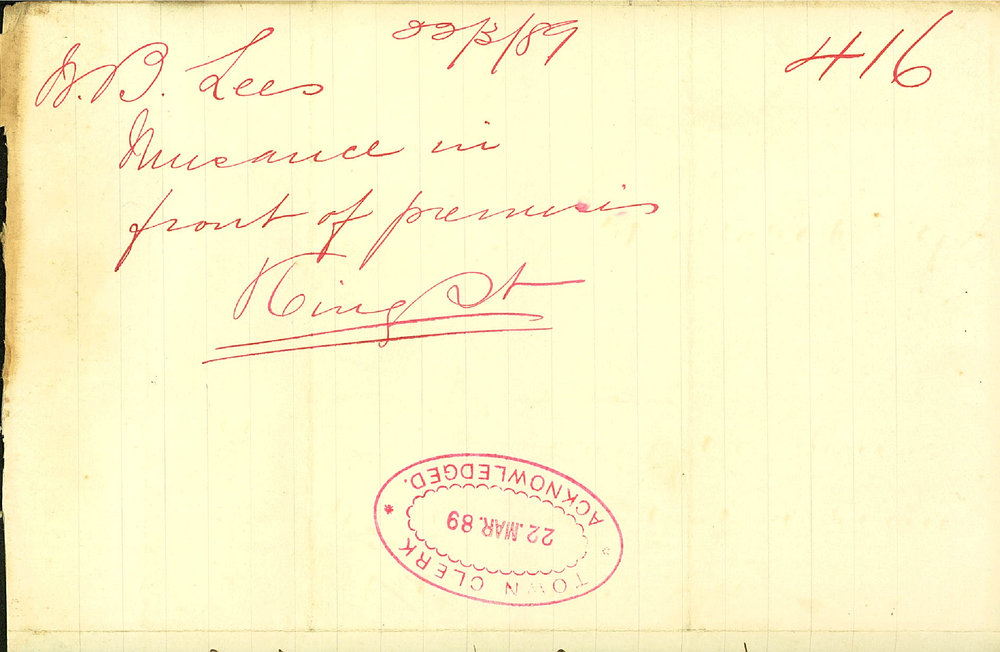 22/3/89
416
W. B. Lees
Nuisance in
front of premises
King St
TOWN CLERK
22.MAR.89
ACKNOWLEDGED.